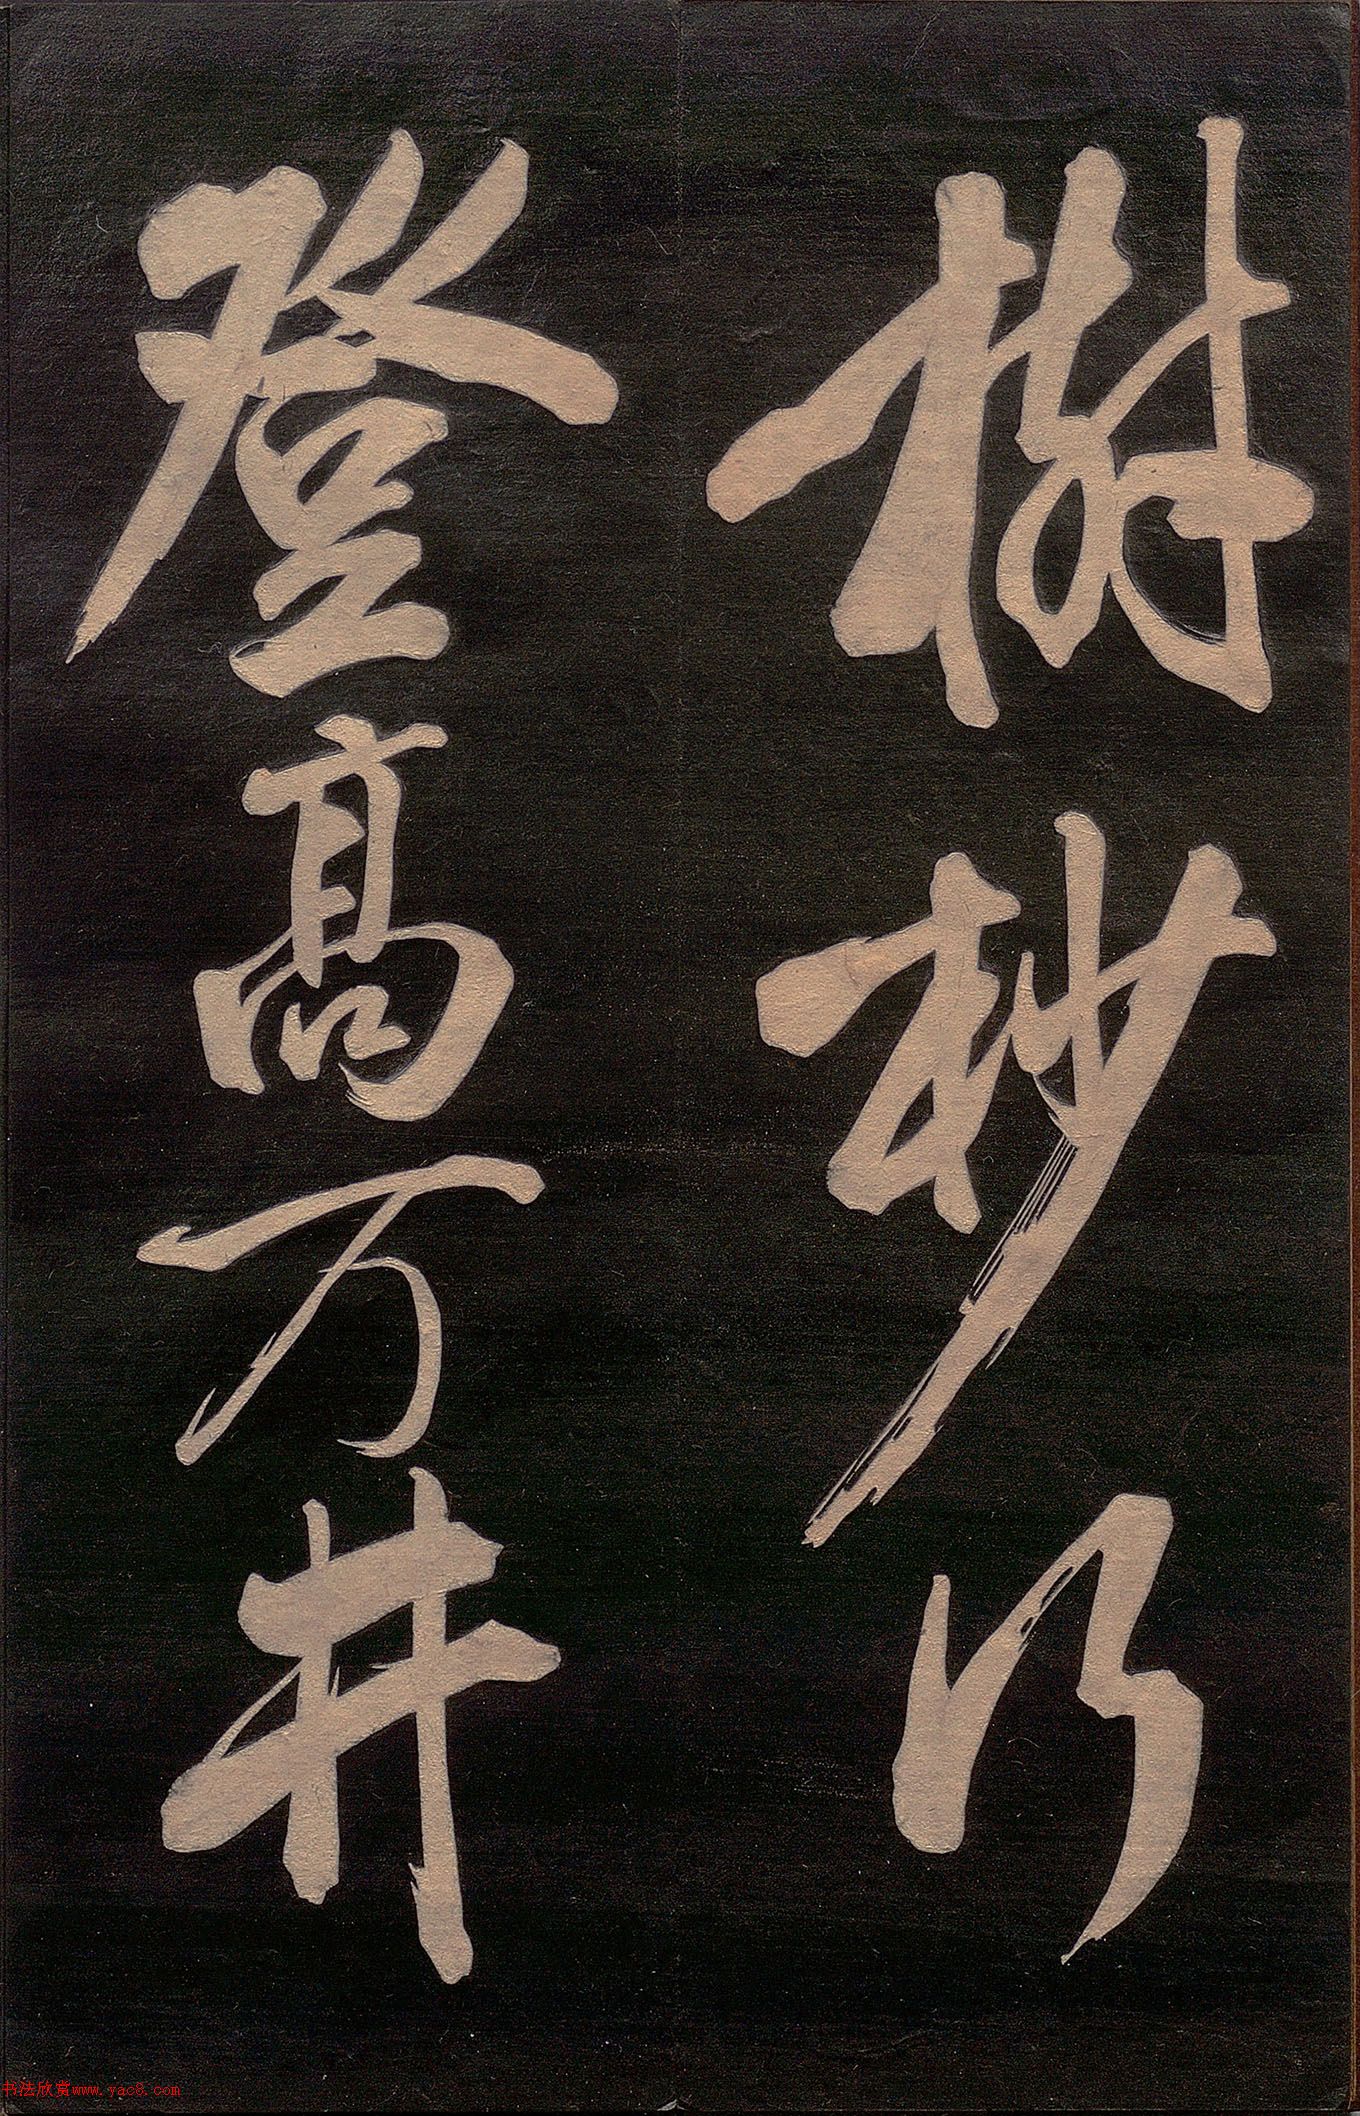 樹杪行
登高万井
书法欣赏www.yac8.com